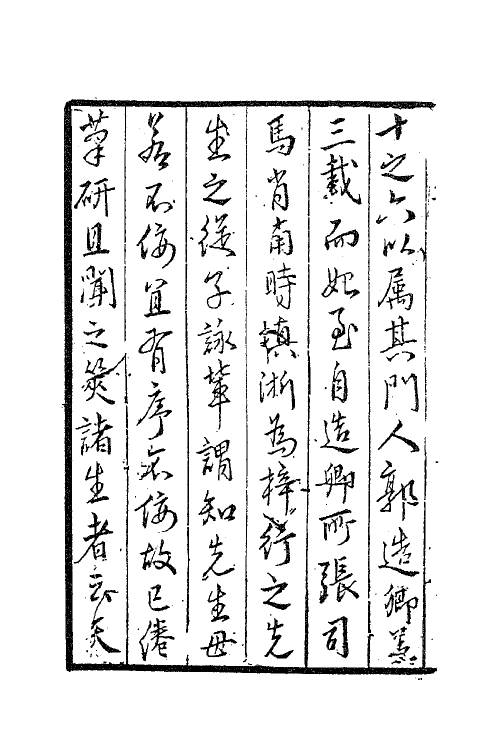 十之六以属其門人郭造卿蓋
三載而始至自造卿所張司
馬肖甫時鎮浙為梓行之先
生之從子詠輩謂知先生毋
若不佞宜有序不佞故已倦
筆研且聞之筴諸生者云天